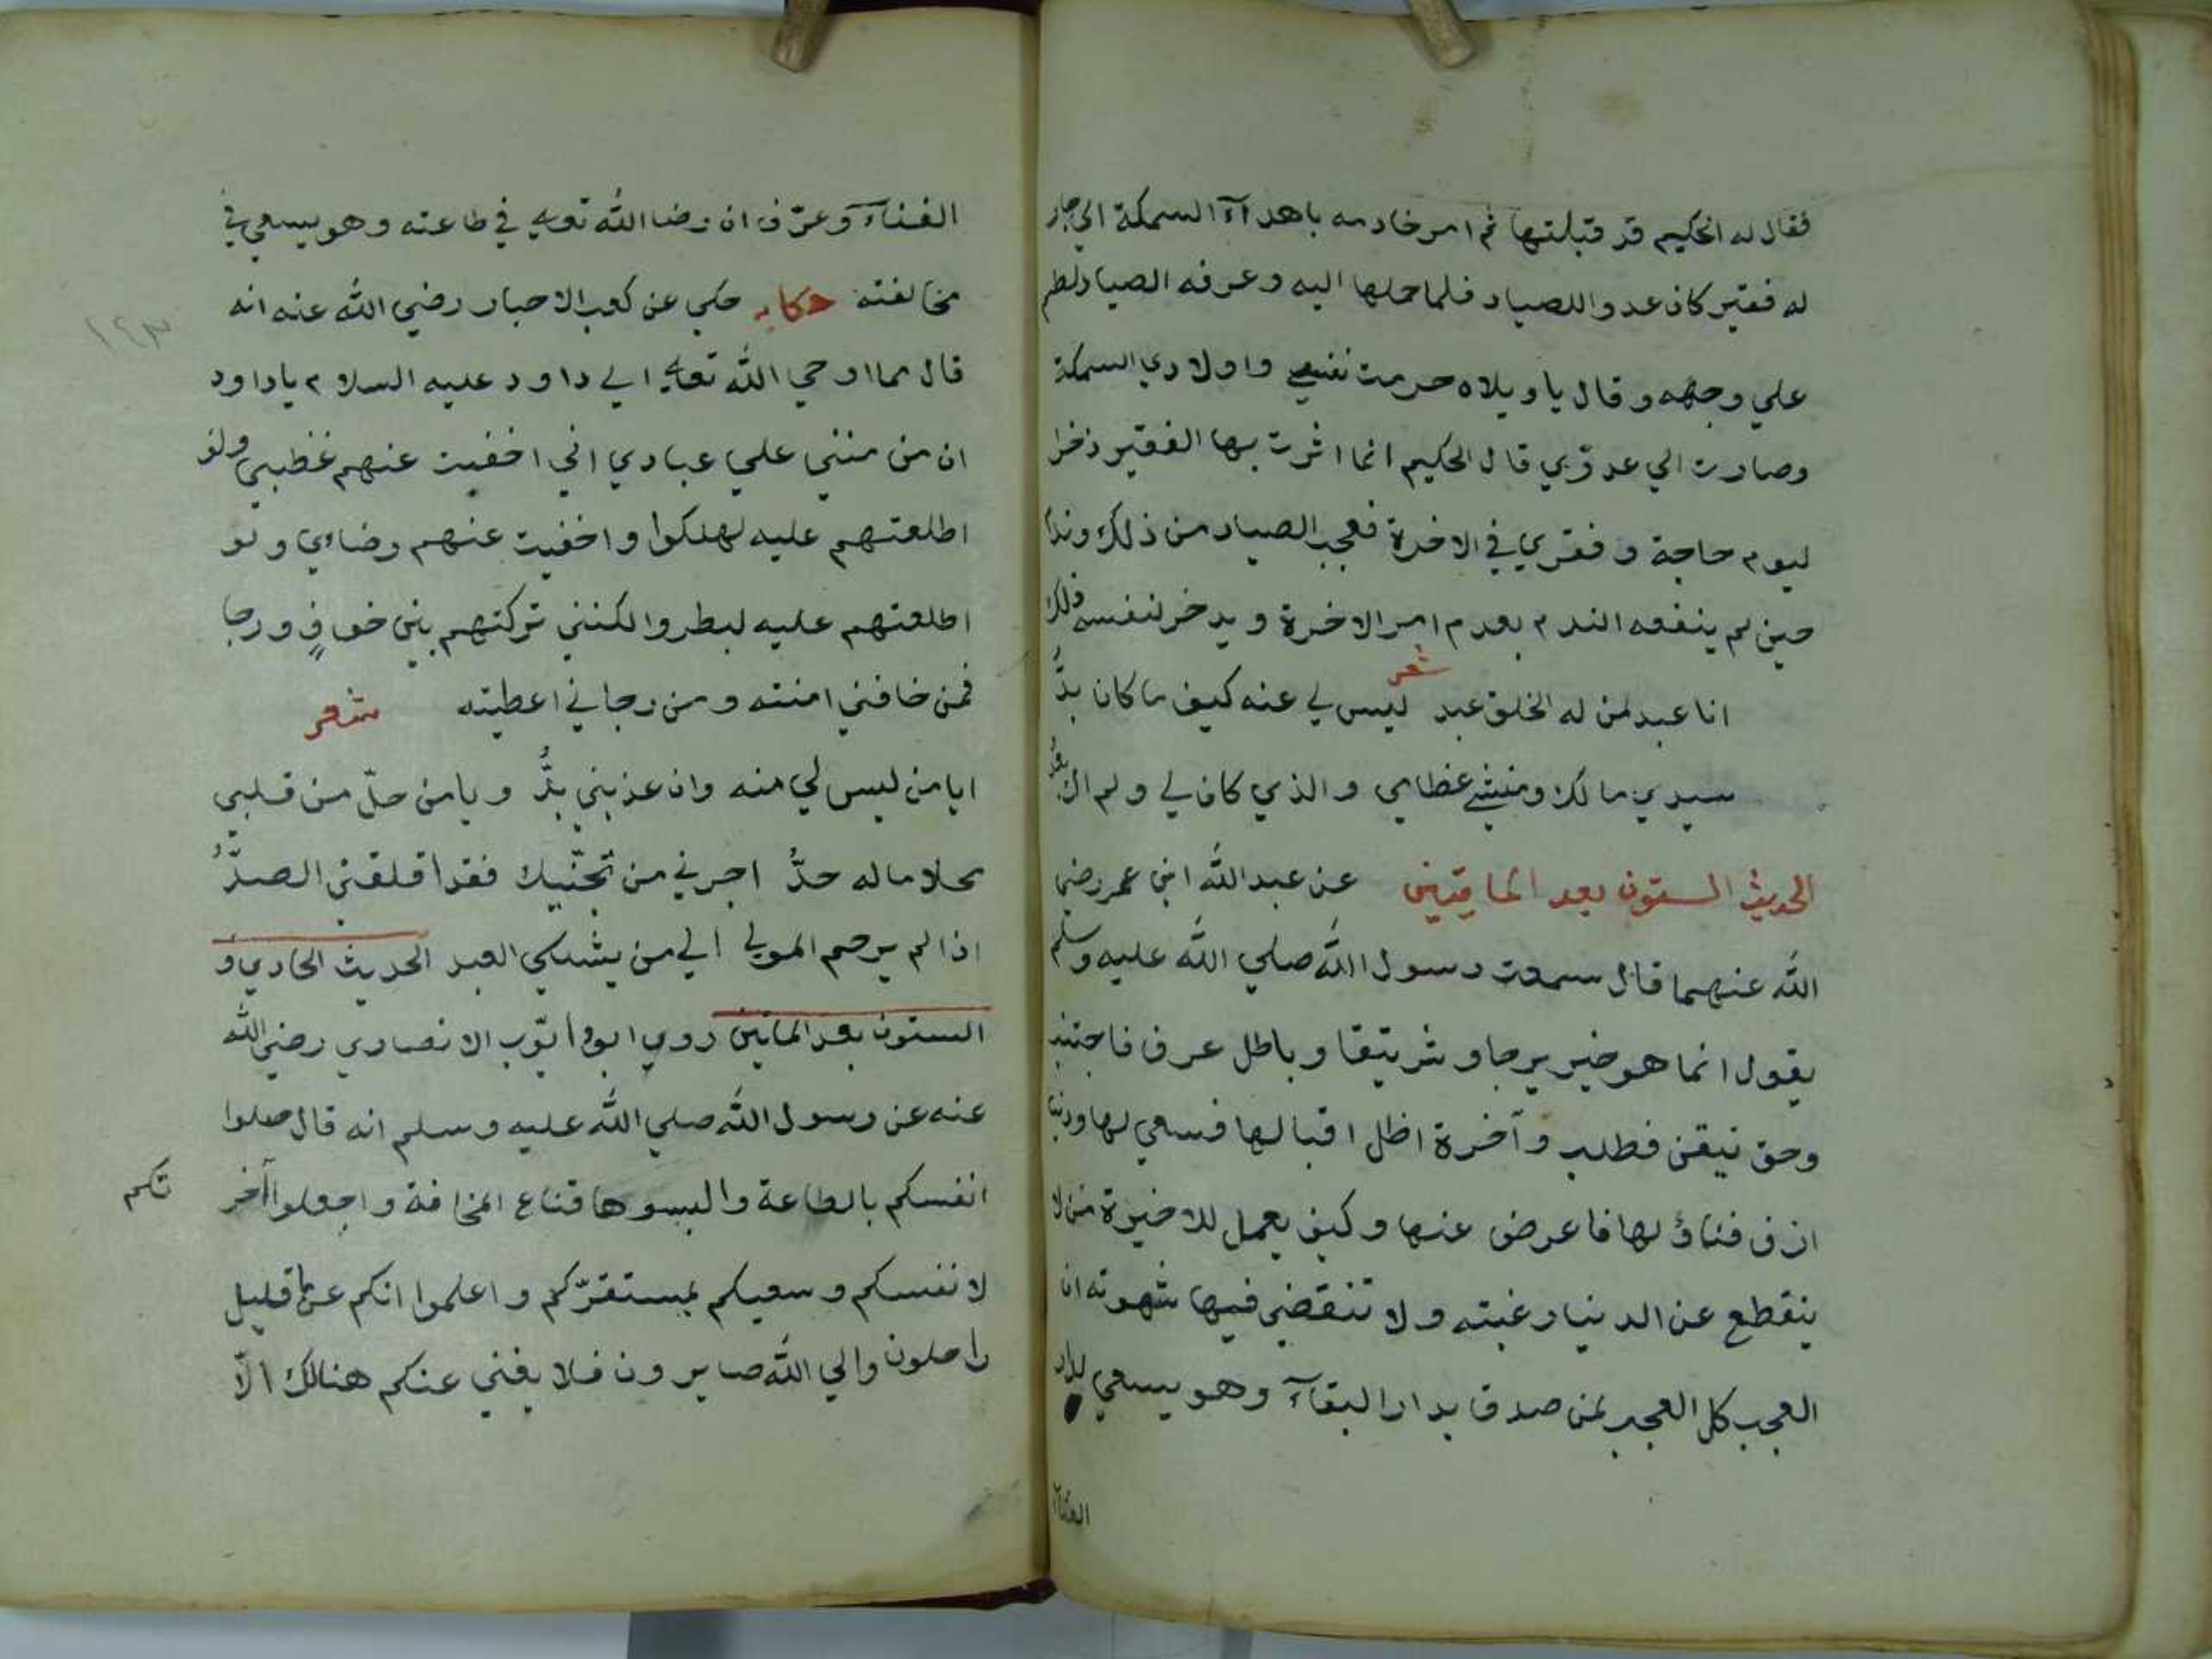 فقال له الحكيم قد قبلتها ثم امر خادمه باهدآء السمكة الي جار
له فقير كان عدو اللصياد فلما حملها اليه وعرفه الصياد لطم
علي وجهه وقال ياويلاه حرمت نفسي واولادي السمكة
وصارت الي عدوّي قال الحكيم انما اثرت بها الفقير ذخرا
ليوم حاجة وفقري في الاخرة فعجب الصياد من ذلك وندم
حين لم ينفعه الندم بعدم امر الاخرة ويدخر لنفسه ذلك
شعر
انا عبد لمن له الخلق عبد ليس لي عنه كيف ما كان بدُّ
سيدي مالك ومنشي عظامي والذي كان لي ولم اك بعدُ
الحديث الستون بعد المايتين عن عبد الله ابن عمر رضي
الله عنهما قال سمعت رسول الله صلي الله عليه وسلم
يقول انما هو خير يرجا وشر يتقا وباطل عرف فاجتنب
وحق تيقن فطلب وآخرة اظل اقبالها فسعي لها ودنيا
ازف فناؤلها فاعرض عنها وكيف يعمل للاخيرة من لا
ينقطع عن الدنيا رغبته ولا تنقضي فيها شهوته ان
العجب كل العجب لمن صدق بدار البقآء وهو يسعي لدار
الفنآء
الفنآء وعرّف ان رضا الله تعالي في طاعته وهو يسعي في
مخالفته حكايه حكي عن كعب الاحبار رضي الله عنه انه
قال مما اوحي الله تعالي الي داود عليه السلام ياداود
ان من منني علي عبادي اني اخفيت عنهم غظبي ولو
اطلعتهم عليه لهلكوا واخفيت عنهم رضاي ولو
اطلعتهم عليه لبطروا لكنني تركتهم بين خوفٍ ورجا
فمن خافني امنته ومن رجاني اعطيته شعر
ايا من ليس لي منه وان عذبني بدُّ ويامن حلّ من قلبي
محلا ماله حدُّ اجرني من تجنّيك فقد اقلقني الصدُّ
اذا لم يرحم المولي الي من يشتكي العبد الحديث الحادي و
الستون بعد الماتين روي ابو ايّوب الانصاري رضي الله
عنه عن رسول الله صلي الله عليه وسلم انه قال حلوا
انفسكم بالطاعة والبسوها قناع المخافة واجعلوا آخر تكم
لانفسكم وسعيكم لمستقرّكم واعلموا انكم عن قليل
راحلون والي الله صايرون فلا يغني عنكم هنالك الّا